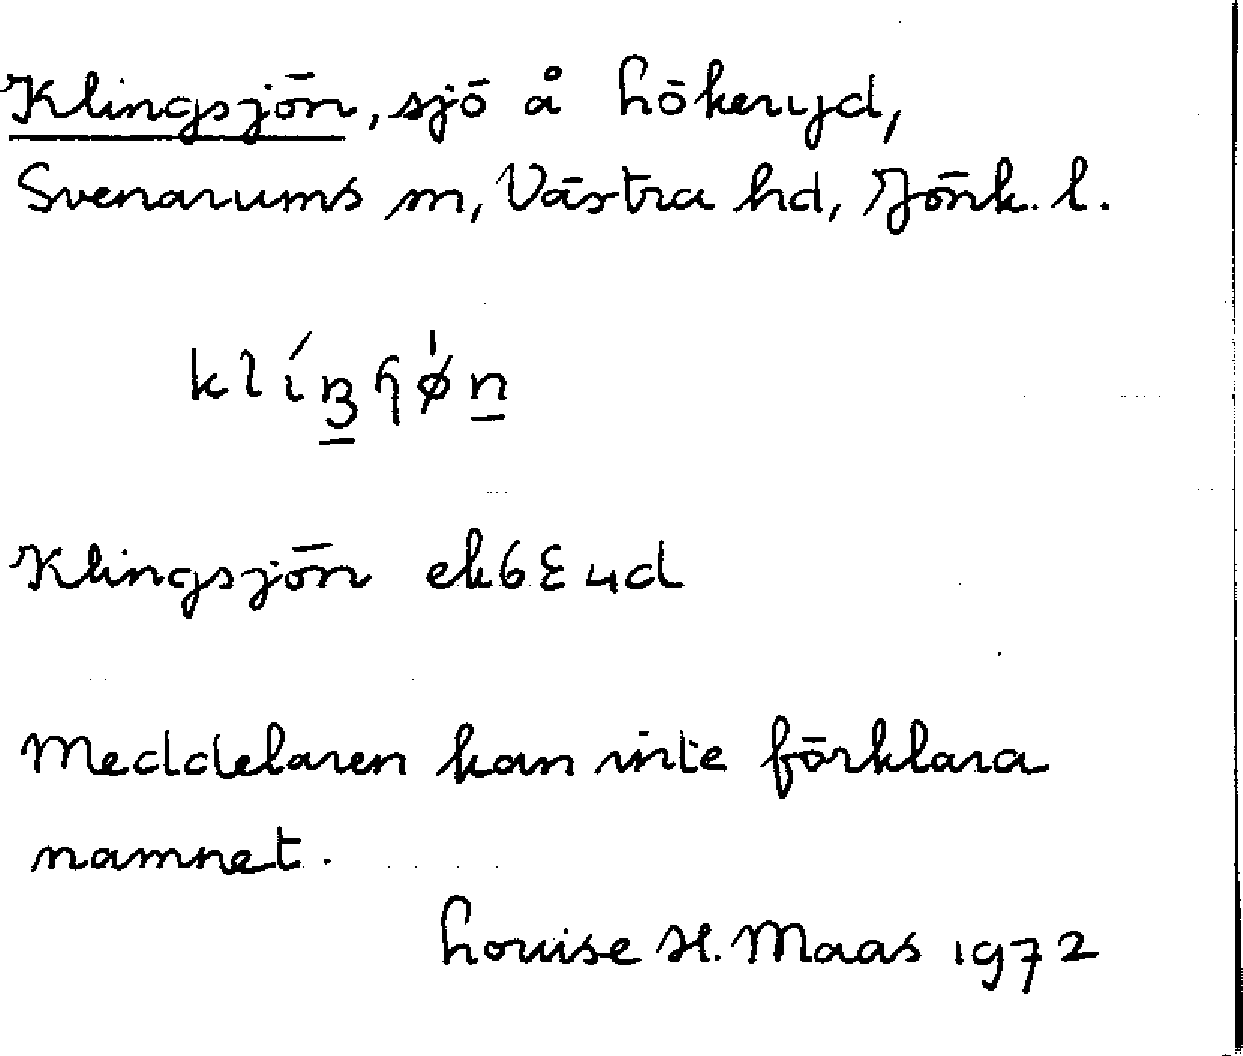 Klingsjön, sjö å Lökeryd,
Svenarums sn, Västra hd, Jönk. l.
Klingsjön ek 6E 4d
Meddelaren kan inte förklara
namnet.
Louise H. Maas 1972